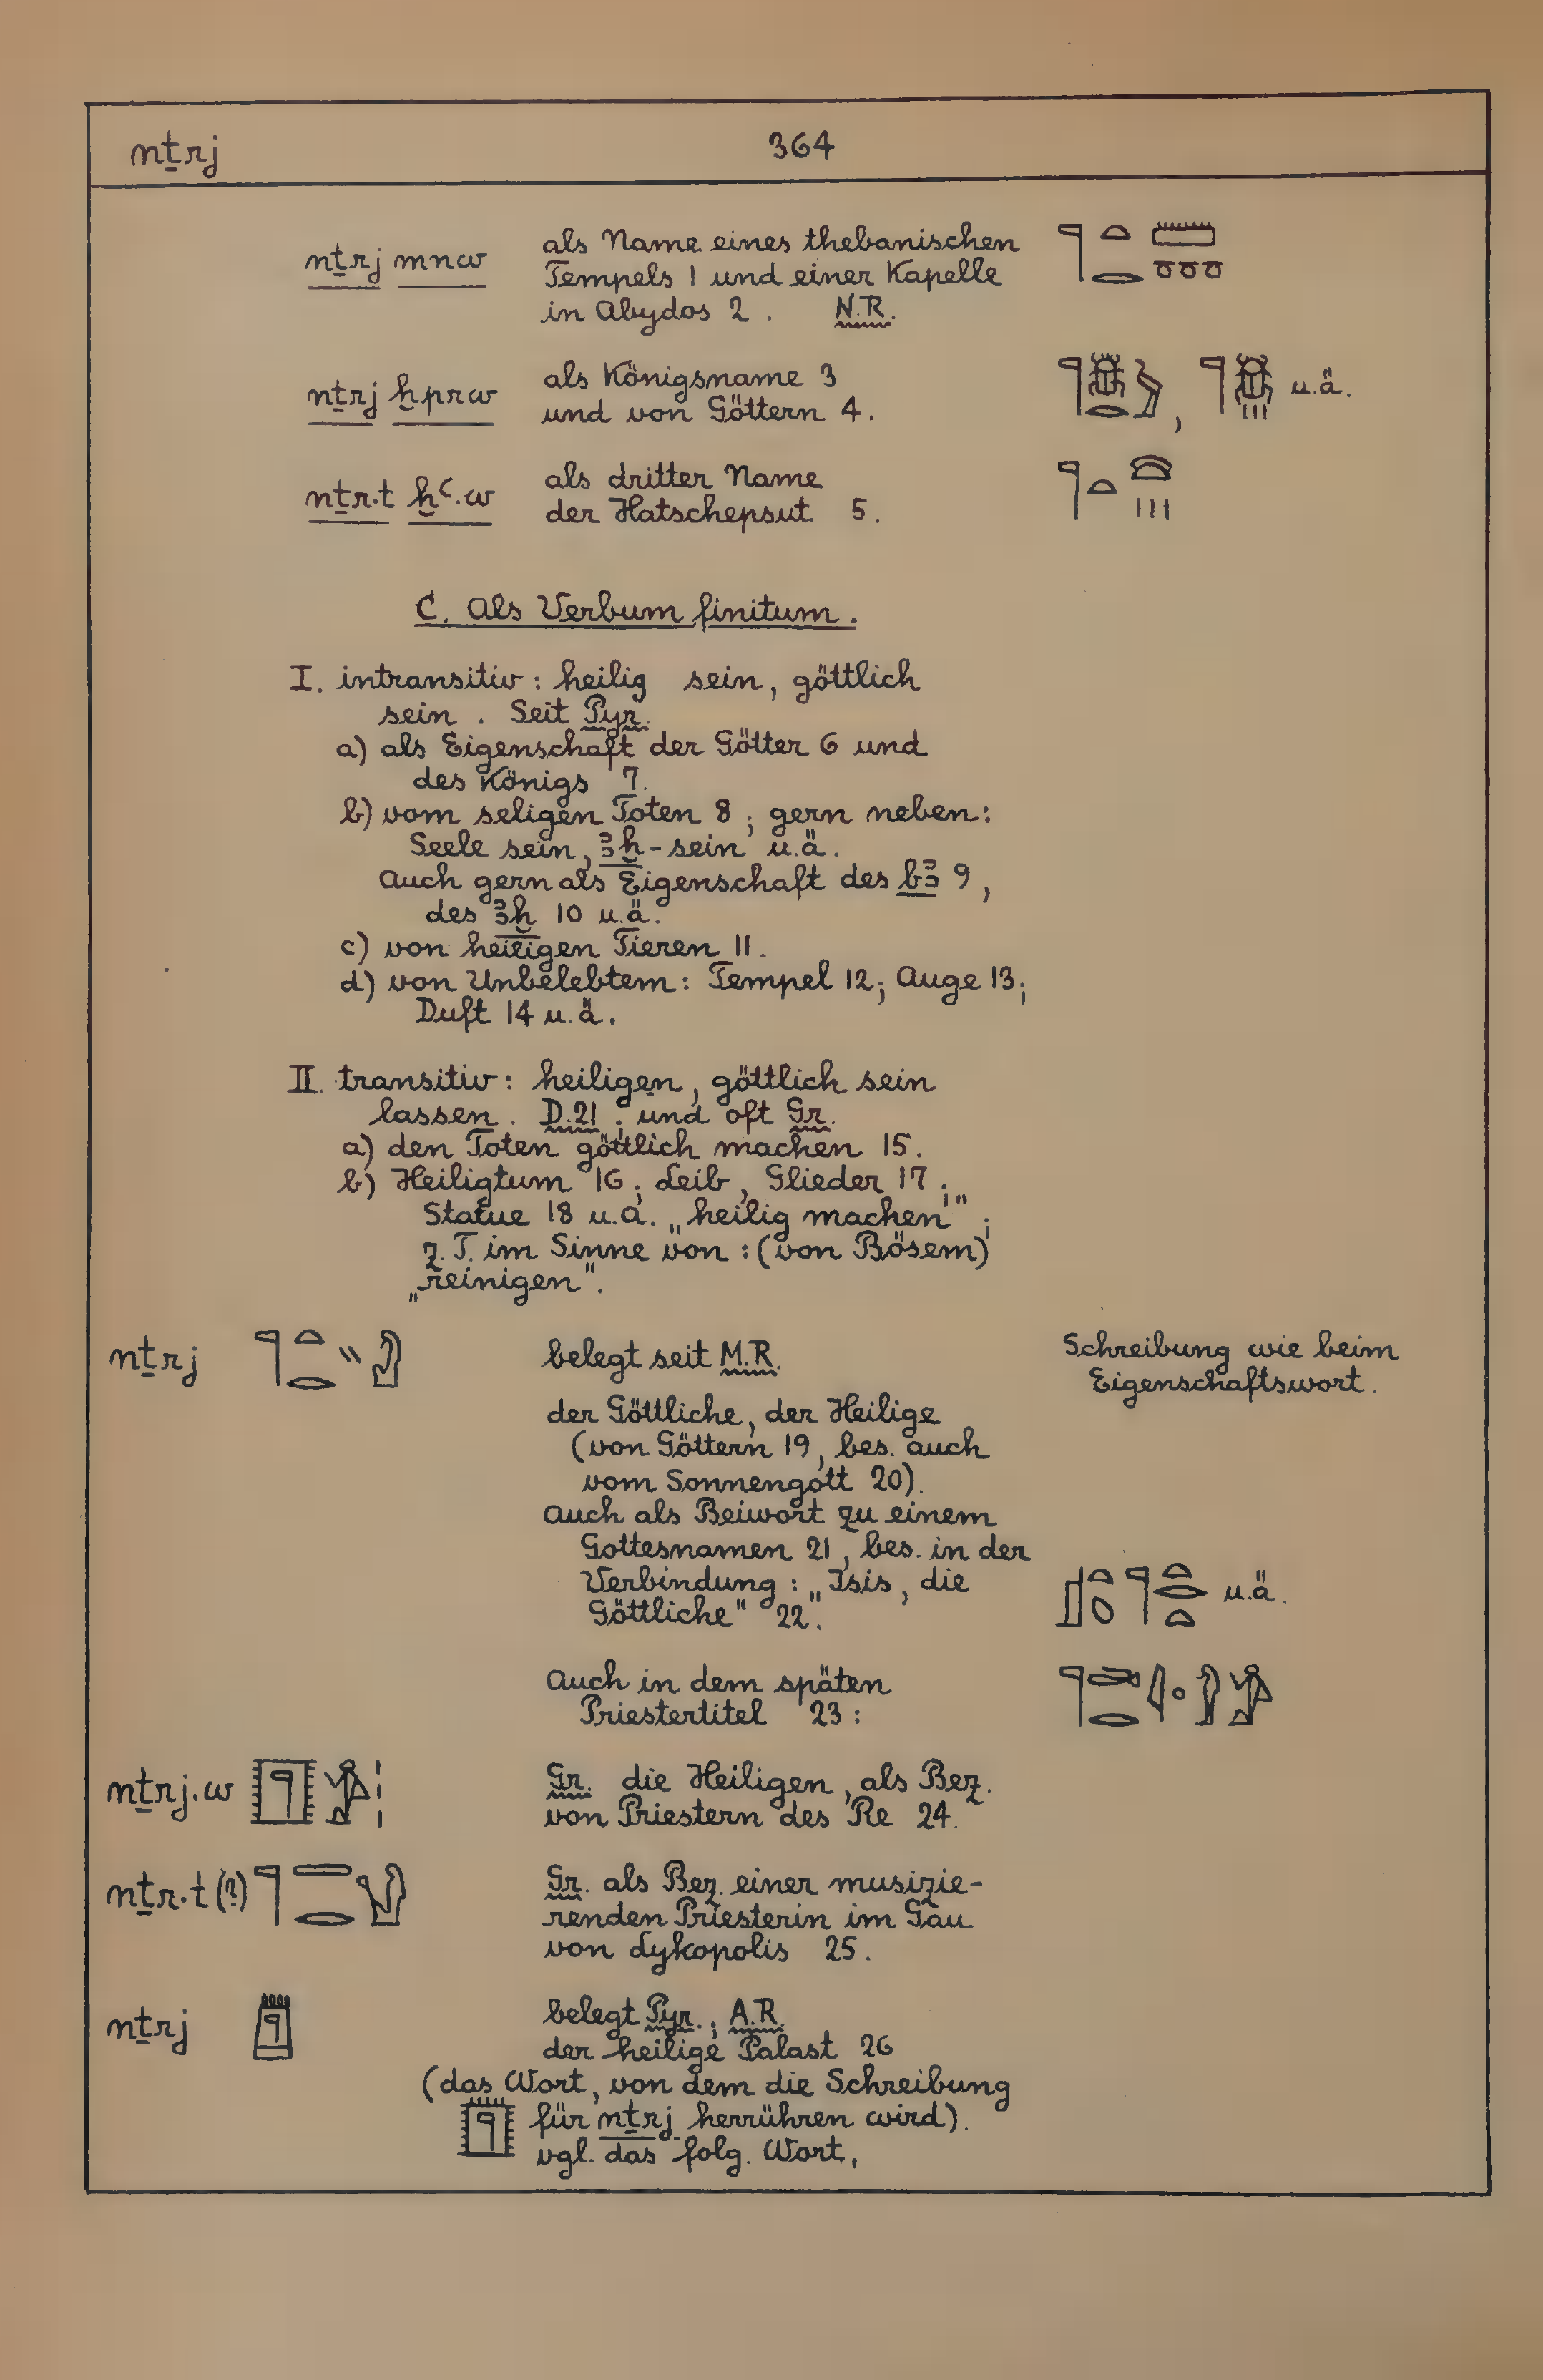 nṯrj 364
nṯrj mnw als Name eines thebanischen
Tempels 1 und einer Kapelle
in Abydos 2 . N.R.
nṯrj ḫprw als Königsname 3
und von Göttern 4. , u.ä.
nṯr.t ḫꜥ.w als dritter Name
der Hatschepsut 5.
C. Als Verbum finitum.
I. intransitiv: heilig sein, göttlich
sein . Seit Pyr.
a) als Eigenschaft der Götter 6 und
des Königs 7.
b) vom seligen Toten 8 ; gern neben:
Seele sein, ꜣḫ-sein u.ä.
Auch gern als Eigenschaft des bꜣ 9,
des ꜣḫ 10 u.ä.
c) von heiligen Tieren 11.
d) von Unbelebtem: Tempel 12; Auge 13;
Duft 14 u.ä.
II. transitiv: heiligen, göttlich sein
lassen. D.21 ; und oft Gr.
a) den Toten göttlich machen 15.
b) Heiligtum 16; Leib, Glieder 17 ;
Statue 18 u.a. „heilig machen" ;
z.T. im Sinne von : (von Bösem)
„reinigen".
nṯrj belegt seit M.R. Schreibung wie beim
Eigenschaftswort.
der Göttliche, der Heilige
(von Göttern 19, bes. auch
vom Sonnengott 20).
Auch als Beiwort zu einem
Gottesnamen 21, bes. in der
Verbindung : „Isis, die u.ä.
Göttliche" 22.
Auch in dem späten
Priestertitel 23 :
nṯrj.w Gr. die Heiligen, als Bez.
von Priestern des Re 24.
nṯr.t (?) Gr. als Bez. einer musizie-
renden Priesterin im Gau
von Lykopolis 25.
nṯrj belegt Pyr. ; A.R.
der heilige Palast 26
(das Wort, von dem die Schreibung
für nṯrj herrühren wird).
vgl. das folg. Wort.